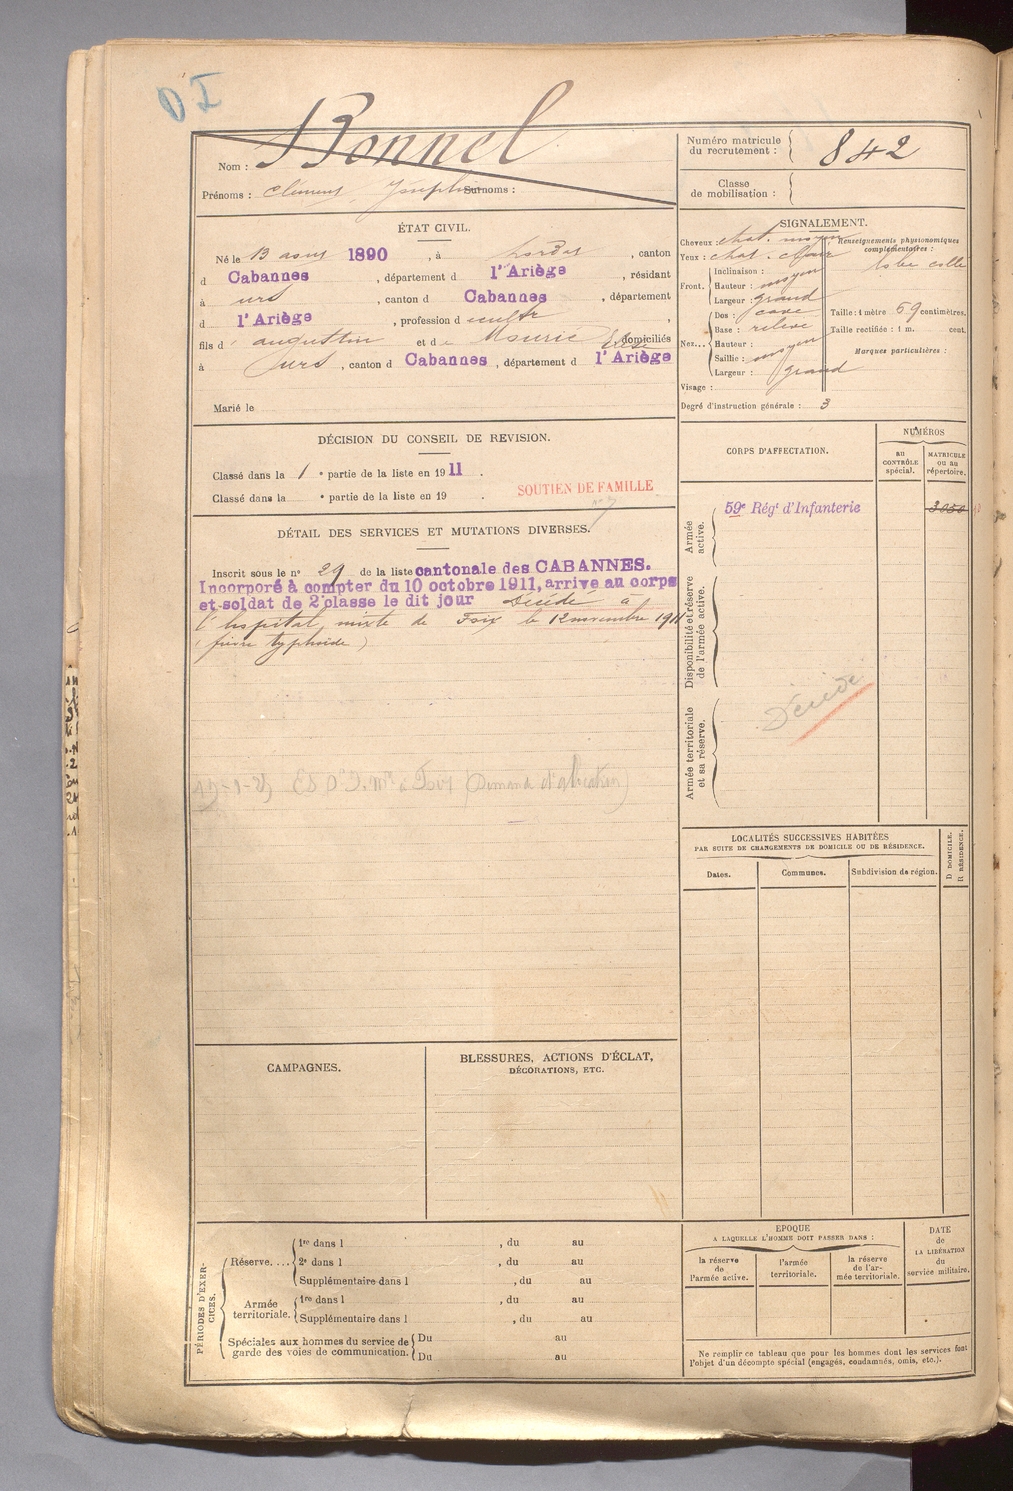 D I
Nom : Bonnel
Prénoms : Clément, Joseph Surnoms :
Numéro matricule
du recrutement : 842
Classe
de mobilisation :
ÉTAT CIVIL.
Né le 13 aout 1890, à Lordat, canton
d Cabannes, département d l'Ariège, résidant
à Urs, canton d Cabannes, département
d l'Ariège, profession d cultr,
fils d' augustin et de Maurié domiciliés
à Urs, canton d Cabannes, département d l'Ariège
Marié le
SIGNALEMENT.
Cheveux : chat. moyen
Yeux : chat. clair
Renseignements physionomiques
complémentaires :
lobe collé
Front.
Inclinaison :
Hauteur : moyen
Largeur : grand
Nez...
Dos : cave
Base : relevé
Hauteur :
Saillie : moyen
Largeur : grand
Taille : 1 mètre 69 centimètres.
Taille rectifiée : 1 m. cent.
Marques particulières :
Visage :
Degré d'instruction générale : 3
DÉCISION DU CONSEIL DE REVISION.
Classé dans la 1e partie de la liste en 1911.
Classé dans la e partie de la liste en 19 .
SOUTIEN DE FAMILLE
DÉTAIL DES SERVICES ET MUTATIONS DIVERSES.
Inscrit sous le n° 29 de la liste cantonale des CABANNES.
Incorporé à compter du 10 octobre 1911, arrive au corps
et soldat de 2e classe le dit jour Décédé à
l'hopital mixte de Foix le 12 novembre 1911
(fièvre typhoïde)
(Demande d'allocation)
CORPS D'AFFECTATION.
NUMÉROS
au
CONTRÔLE
spécial.
MATRICULE
ou au
répertoire.
Armée
active.
59e Régt d'Infanterie 3050
Disponibilité et réserve
de l'armée active.
Armée territoriale
et sa réserve.
Décédé
LOCALITÉS SUCCESSIVES HABITÉES
PAR SUITE DE CHANGEMENTS DE DOMICILE OU DE RÉSIDENCE.
Dates. Communes. Subdivision de région.
D DOMICILE.
R RÉSIDENCE.
CAMPAGNES.
BLESSURES, ACTIONS D'ÉCLAT,
DÉCORATIONS, ETC.
PÉRIODES D'EXER-
CICES.
Réserve....
1re dans l , du au
2e dans l , du au
Supplémentaire dans l , du au
Armée
territoriale.
1re dans l , du au
Supplémentaire dans l , du au
Spéciales aux hommes du service de
garde des voies de communication.
Du au
Du au
EPOQUE
A LAQUELLE L'HOMME DOIT PASSER DANS :
la réserve
de
l'armée active.
l'armée
territoriale.
la réserve
de l'ar-
mée territoriale.
DATE
de
LA LIBÉRATION
du
service militaire.
Ne remplir ce tableau que pour les hommes dont les services font
l'objet d'un décompte spécial (engagés, condamnés, omis, etc.).